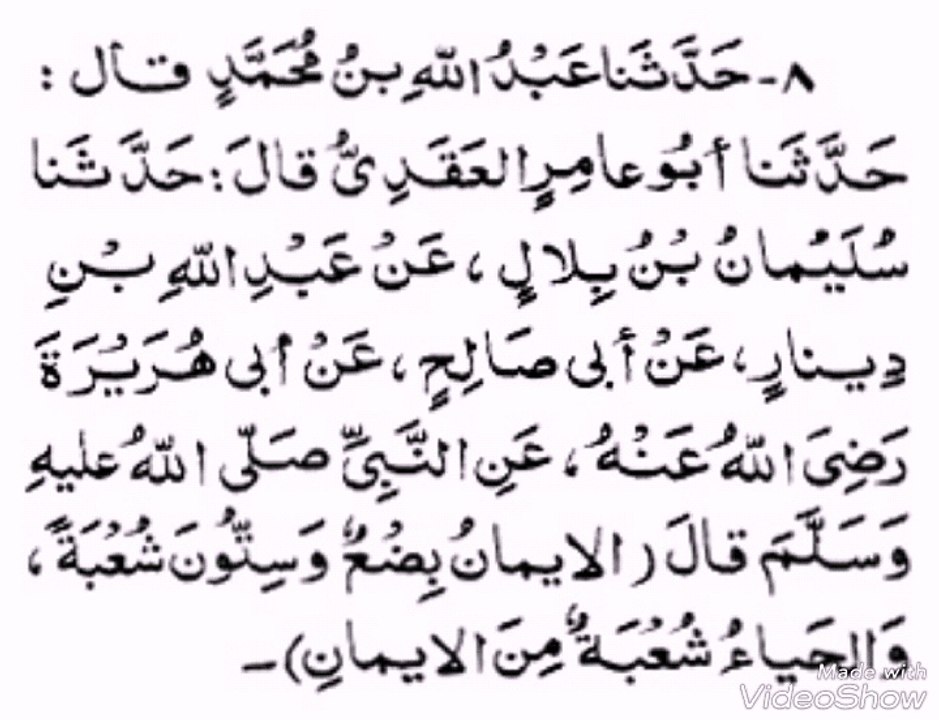 ٨- حَدَّثَنا عَبْدُ اللّٰهِ بنُ مُحَمَّدٍ قال :
حَدَّثَنا أبُو عامِرٍ العَقَدِىُّ قالَ : حَدَّثَنا
سُلَيْمانُ بْنُ بِلالٍ ، عَنْ عَبْدِ اللّٰهِ بْنِ
دِينارٍ ، عَنْ أبى صَالِحٍ ، عَنْ أبى هُرَيْرَةَ
رَضِىَ اللّٰهُ عَنْهُ ، عَنِ النَّبِىِّ صَلّى اللّٰهُ علَيهِ
وَسَلَّمَ قالَ ( الايمانُ بِضْعٌ وَسِتُّونَ شُعْبَةً ،
وَالحَياءُ شُعْبَةٌ مِنَ الايمانِ ) –
Made with
VideoShow